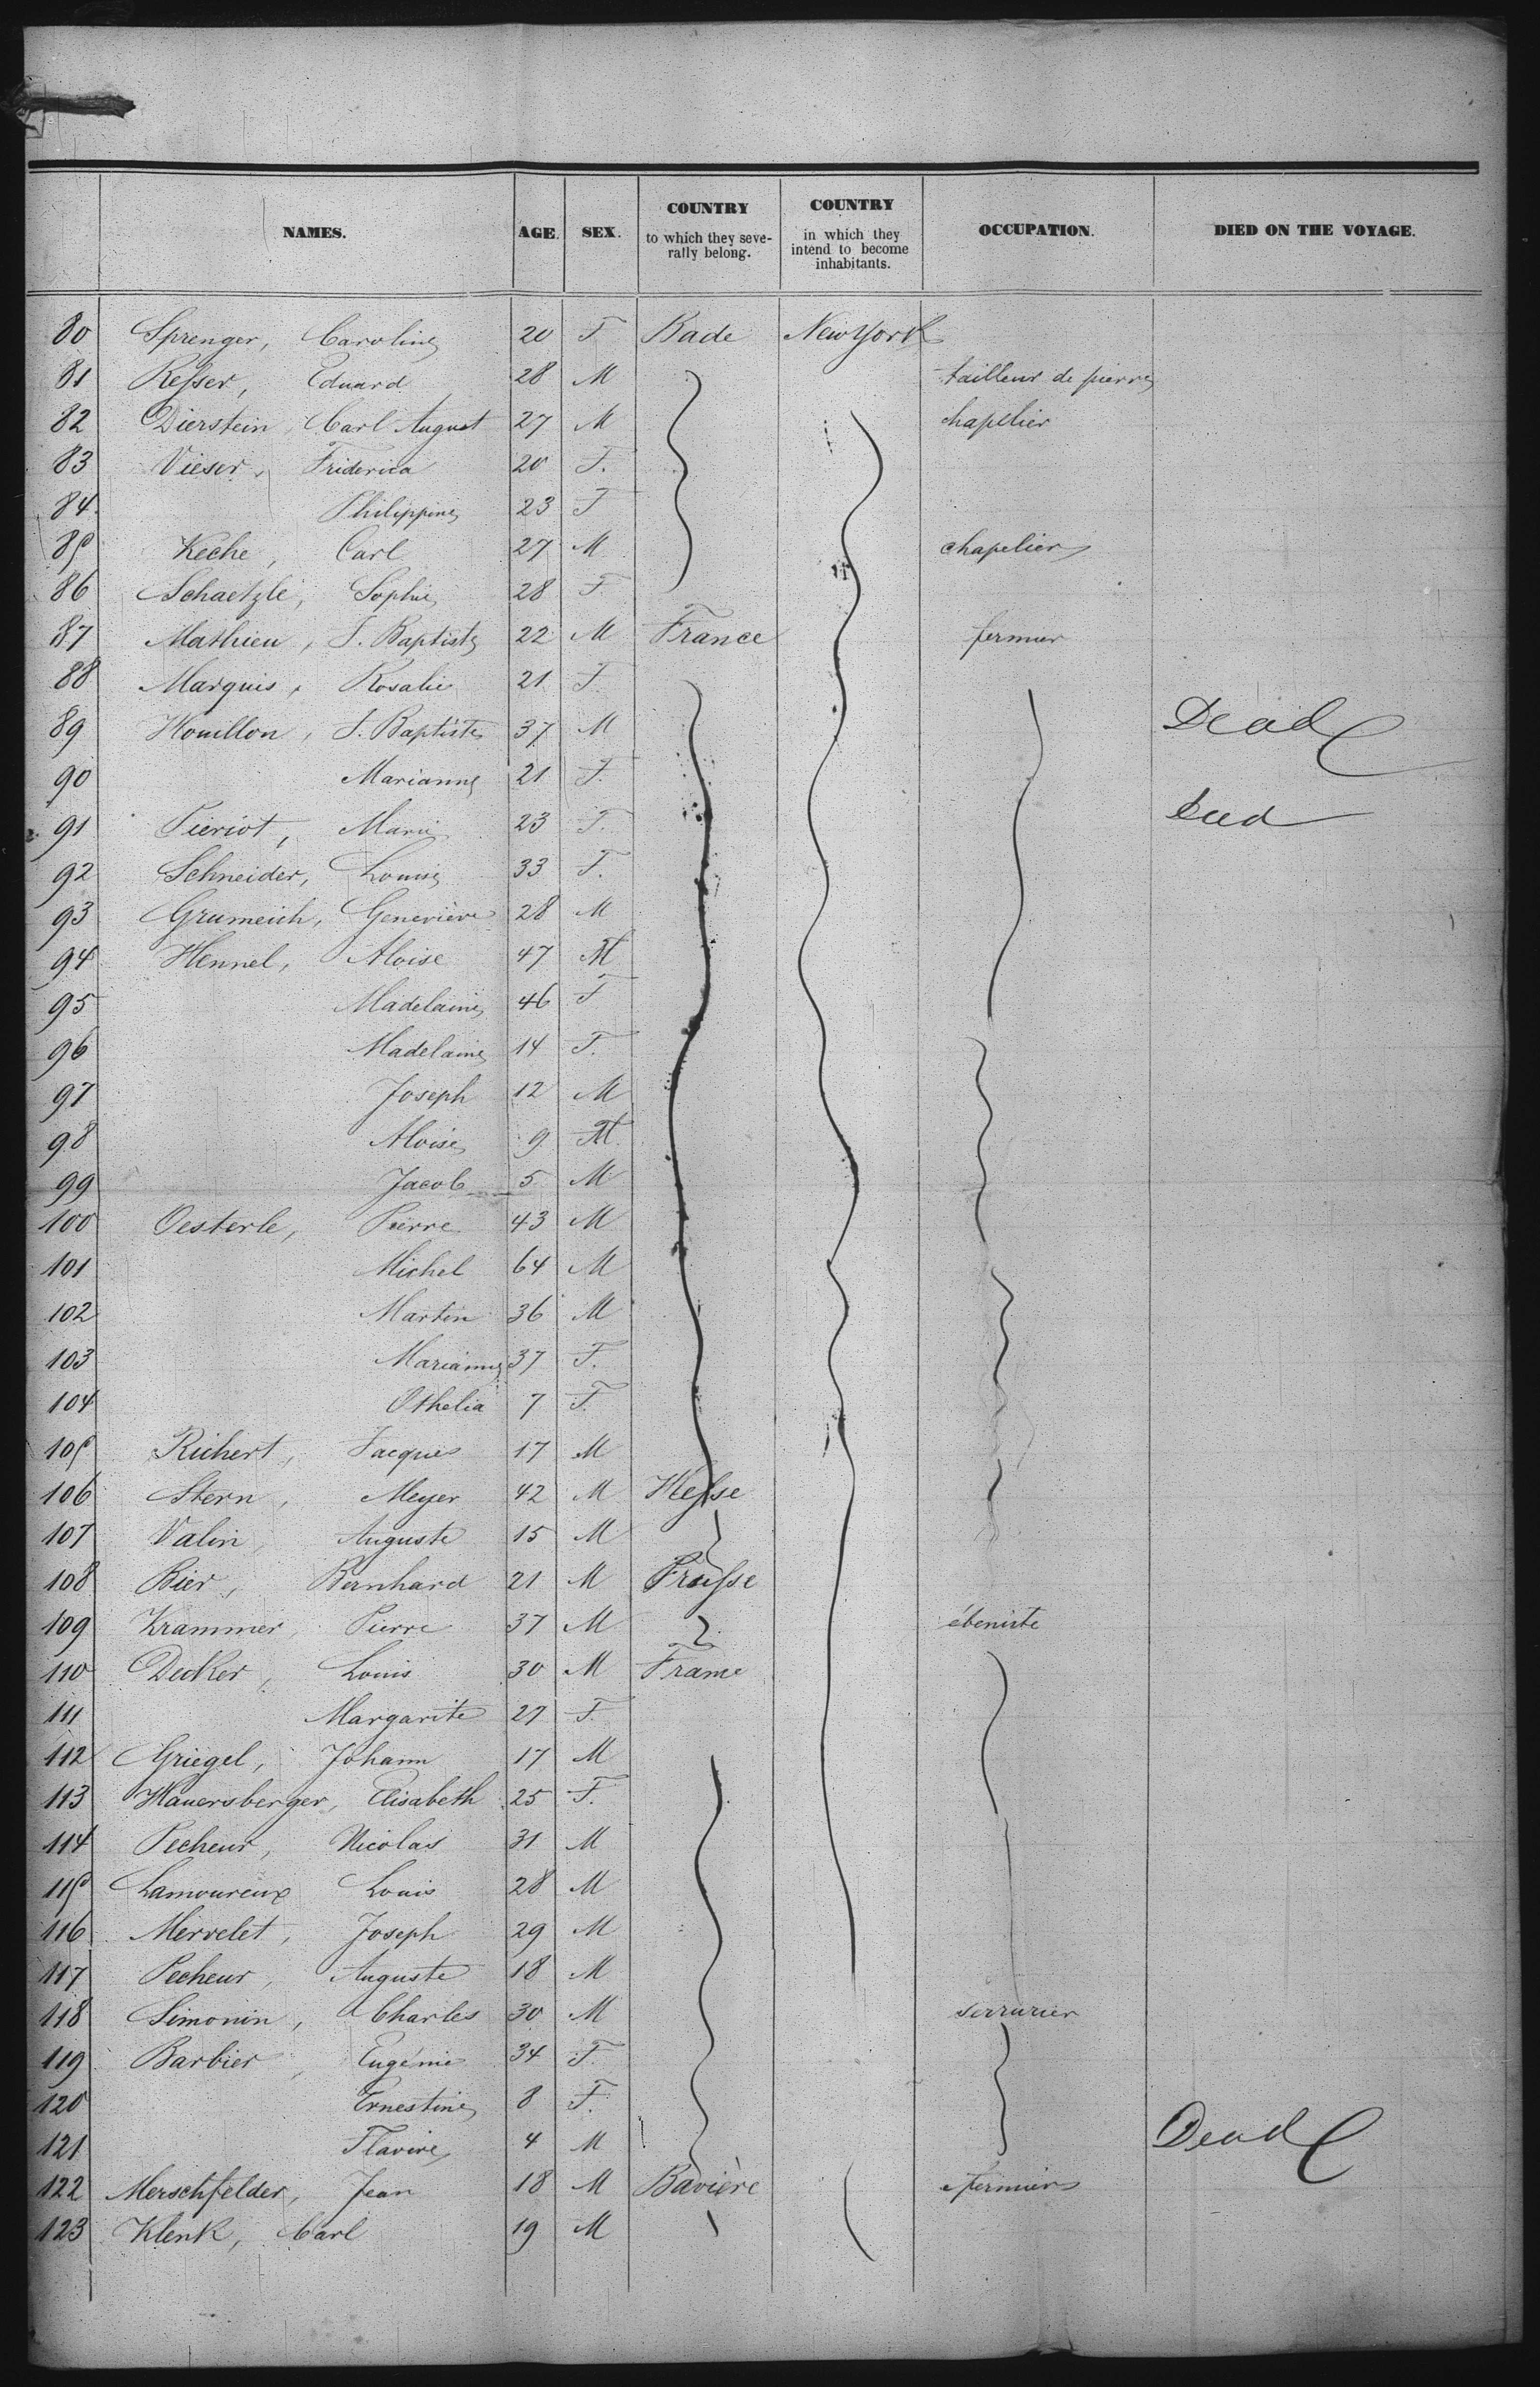 NAMES. AGE. SEX. COUNTRY to which they seve-rally belong. COUNTRY in which they intend to become inhabitants. OCCUPATION. DIED ON THE VOYAGE.
80 Sprenger, Caroline 20 F Bade New York
81 Resser, Eduard 28 M tailleur de pierre
82 Dierstein, Carl August 27 M chapelier
83 Vieser, Friderica 20 F.
84 Philippine 23 F
85 Keche, Carl 27 M chapelier
86 Schaetzle, Sophie 28 F
87 Mathieu, J. Baptiste 22 M France fermier
88 Marquis, Rosalie 21 F
89 Houillon, J. Baptiste 37 M Dead
90 Marianne 21 F.
91 Pieriot, Marie 23 F. Dead
92 Schneider, Louise 33 F.
93 Grumeich, Geneviève 28 M
94 Hennel, Aloise 47 M
95 Madelaine 46 F
96 Madelaine 14 F.
97 Joseph 12 M
98 Aloise 9 M.
99 Jacob 5 M
100 Oesterle, Pierre 43 M
101 Michel 64 M
102 Martin 36 M
103 Marianne 37 F.
104 Othelia 7 F.
105 Richert, Jacques 17 M
106 Stern, Meyer 42 M Hesse
107 Valin, Auguste 15 M
108 Bier, Bernhard 21 M Prusse
109 Krammer, Pierre 37 M ébeniste
110 Decker, Louis 30 M France
111 Margarite 27 F.
112 Griegel, Johann 17 M
113 Hauersberger, Elisabeth 25 F.
114 Pecheur, Nicolas 31 M
115 Lamoureux Louis 28 M
116 Mervelet, Joseph 29 M
117 Pecheur, Auguste 18 M
118 Simonin, Charles 30 M serrurier
119 Barbier, Eugénie 34 F.
120 Ernestine 8 F.
121 Flavire 4 M Dead
122 Merschfelder, Jean 18 M Bavière fermier
123 Klenk, Carl 19 M